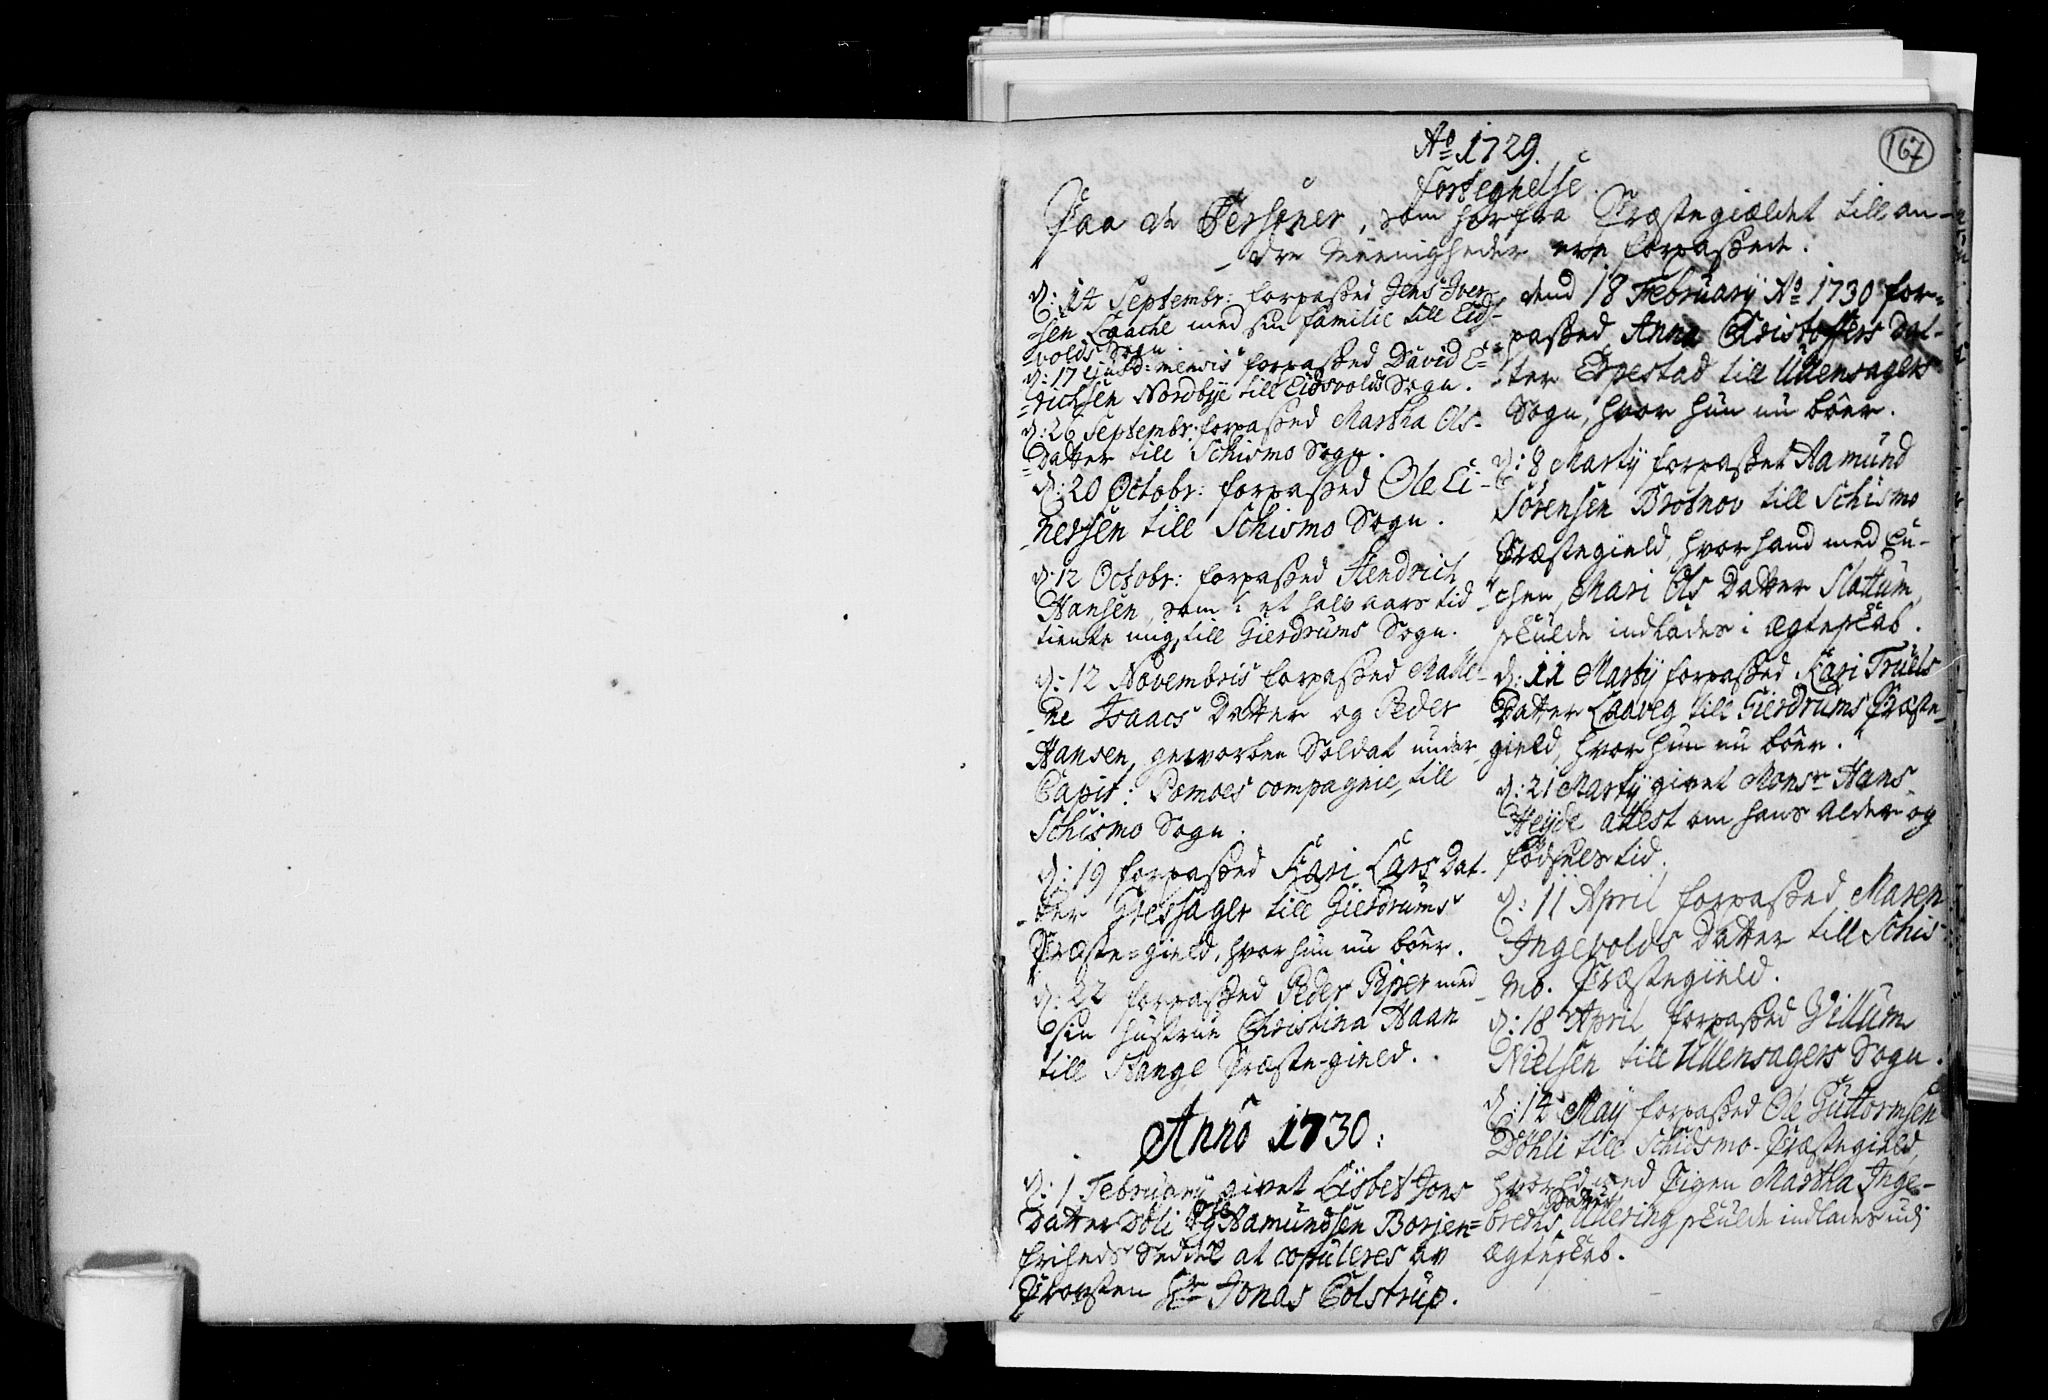 167
Aō 1729.
Fortegnelse
Paa de Persohner, som her fra Præstegieldet till an-
dre Meenigheder ere forpassede.
d: 14 Septembr: forpassed Jens Iver-
sen Laache med sin familie till Eids-
volds Sogn.
d: 17 ejusd: mensis forpassed David E-
richsen Nordbye till Eidsvolds Sogn.
d: 26 Septembr: forpassed Martha Ols-
Datter till Schismo Sogn.
d: 20 Octobr: forpassed Ole Ei-
nersen till Schismo Sogn.
d: 12 Octobr: forpassed Hendrich
Hansen, som i et halv aars tid
tiente mig, till Gierdrums Sogn.
d: 12 Novembris forpassed Malle-
ne Isaacs Datter og Peder
Hansen, gevorben Soldat under
Capit: Pomoes compagnie, till
Schismo Sogn.
d: 19 forpassed Kari Lars Dat-
ter Gressager till Gierdrums
Præste-gield, hvor hun nu bôer.
d: 22 forpassed Peder Piper med
sin hustrue Christina Haan
till Stange Præste-gield.
Anno 1730:
d: 1 February givet Lisbet Jons
Datter Döli og Amundsen Borjen-
friheds Seddel at copuleres av
Provsten Hr Jonas Colstrup.
dend 18 February Aō 1730 for-
passed Anna Christoffers Dat-
ter Espestad till Ullensagers
Sogn, hvor hun nu bôer.
d: 8 Martÿ forpasset Aamund
Sörensen Brotnov till Schismo
Præstegield, hvor hand med En-
chen Mari Ols Datter Slattum,
skulde indlades i ægteskab.
d: 11 Martÿ forpassed Kari Truels
Datter Laaveg till Gierdrums Præste-
gield, hvor hun nu bôer.
d: 21 Martÿ givet Monsr Hans
Heyde attest om hans Alder og
födsels tid.
d: 11 April forpassed Maren
Ingevolds Datter till Schis-
mo. Præstegield.
d: 18 April forpassed Gillum
Nielsen till Ullensagers Sogn.
d: 14 May forpassed Ole Guttormsen
Döhli till Schidsmo-Præstegield,
hvor hd med Pigen Martha Inge-
breths Datter Ullering skulde indlades udj
ægteskab.